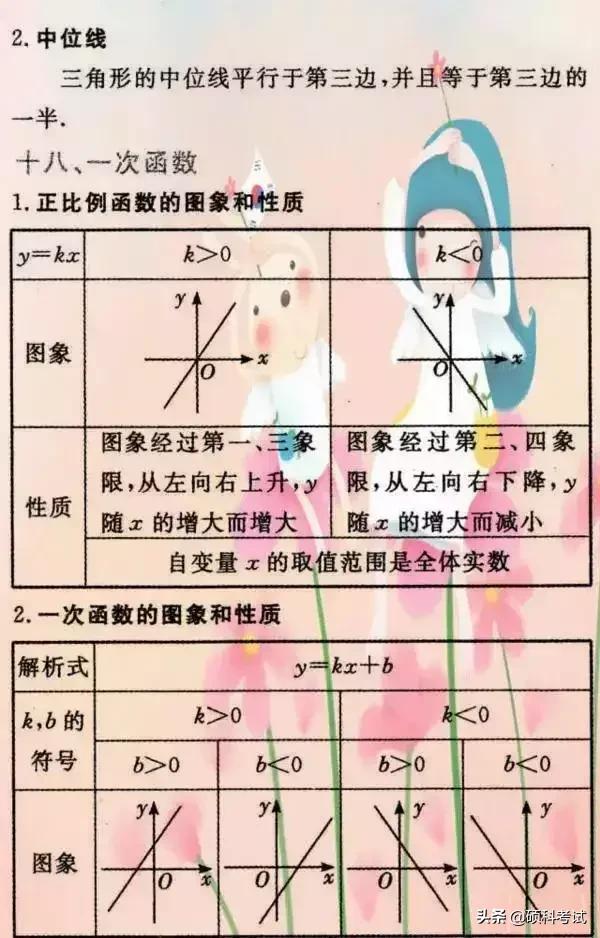 2. 中位线
三角形的中位线平行于第三边,并且等于第三边的
一半.
十八、一次函数
1. 正比例函数的图象和性质
y=kx k>0 k<0
图象 y x O y x O
性质 图象经过第一、三象限,从左向右上升,y随x的增大而增大 图象经过第二、四象限,从左向右下降,y随x的增大而减小
自变量 x 的取值范围是全体实数
2. 一次函数的图象和性质
解析式 y=kx+b
k,b的符号 k>0 k<0
b>0 b<0 b>0 b<0
图象 y O x y O x y O x y O x
头条 @硕科考试